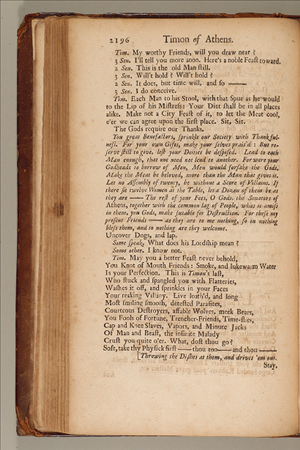 2196 Timon of Athens.
Tim. My worthy Friends, will you draw near?
3 Sen. I'll tell you more anon. Here's a noble Feast toward.
2 Sen. This is the old Man still.
3 Sen. Will't hold? Will't hold?
2 Sen. It does, but time will, and so ——
3 Sen. I do conceive.
Tim. Each Man to his Stool, with that Spur as he would
to the Lip of his Mistress: Your Diet shall be in all places
alike. Make not a City Feast of it, to let the Meat cool,
e'er we can agree upon the first place. Sit, Sit.
The Gods require our Thanks.
You great Benefactors, sprinkle our Society with Thankful-
ness. For your own Gifts, make your selves prais'd: But re-
serve still to give, lest your Deities be despised. Lend to each
Man enough, that one need not lend to another. For were your
Godheads to borrow of Men, Men would forsake the Gods.
Make the Meat be beloved, more than the Man that gives it.
Let no Assembly of twenty, be without a Score of Villains. If
there sit twelve Women at the Table, let a Dozen of them be as
they are —— The rest of your Foes, O Gods, the Senators of
Athens, together with the common lag of People, what is amiss
in them, you Gods, make suitable for Destruction. For these my
present Friends —— as they are to me nothing, so in nothing
bless them, and to nothing are they welcome.
Uncover Dogs, and lap.
Some speak. What does his Lordship mean?
Some other. I know not.
Tim. May you a better Feast never behold,
You Knot of Mouth Friends: Smoke, and lukewarm Water
Is your Perfection. This is Timon's last,
Who stuck and spangled you with Flatteries,
Washes it off, and sprinkles in your Faces
Your reaking Villany. Live loath'd, and long
Most smiling smooth, detested Parasites,
Courteous Destroyers, affable Wolves, meek Bears,
You Fools of Fortune, Trencher-Friends, Time-flies,
Cap and Knee Slaves, Vapors, and Minute Jacks
Of Man and Beast, the infinite Malady
Crust you quite o'er. What, dost thou go?
Soft, take thy Physick first —— thou too —— and thou ——
[Throwing the Dishes at them, and drives 'em out.
Stay,